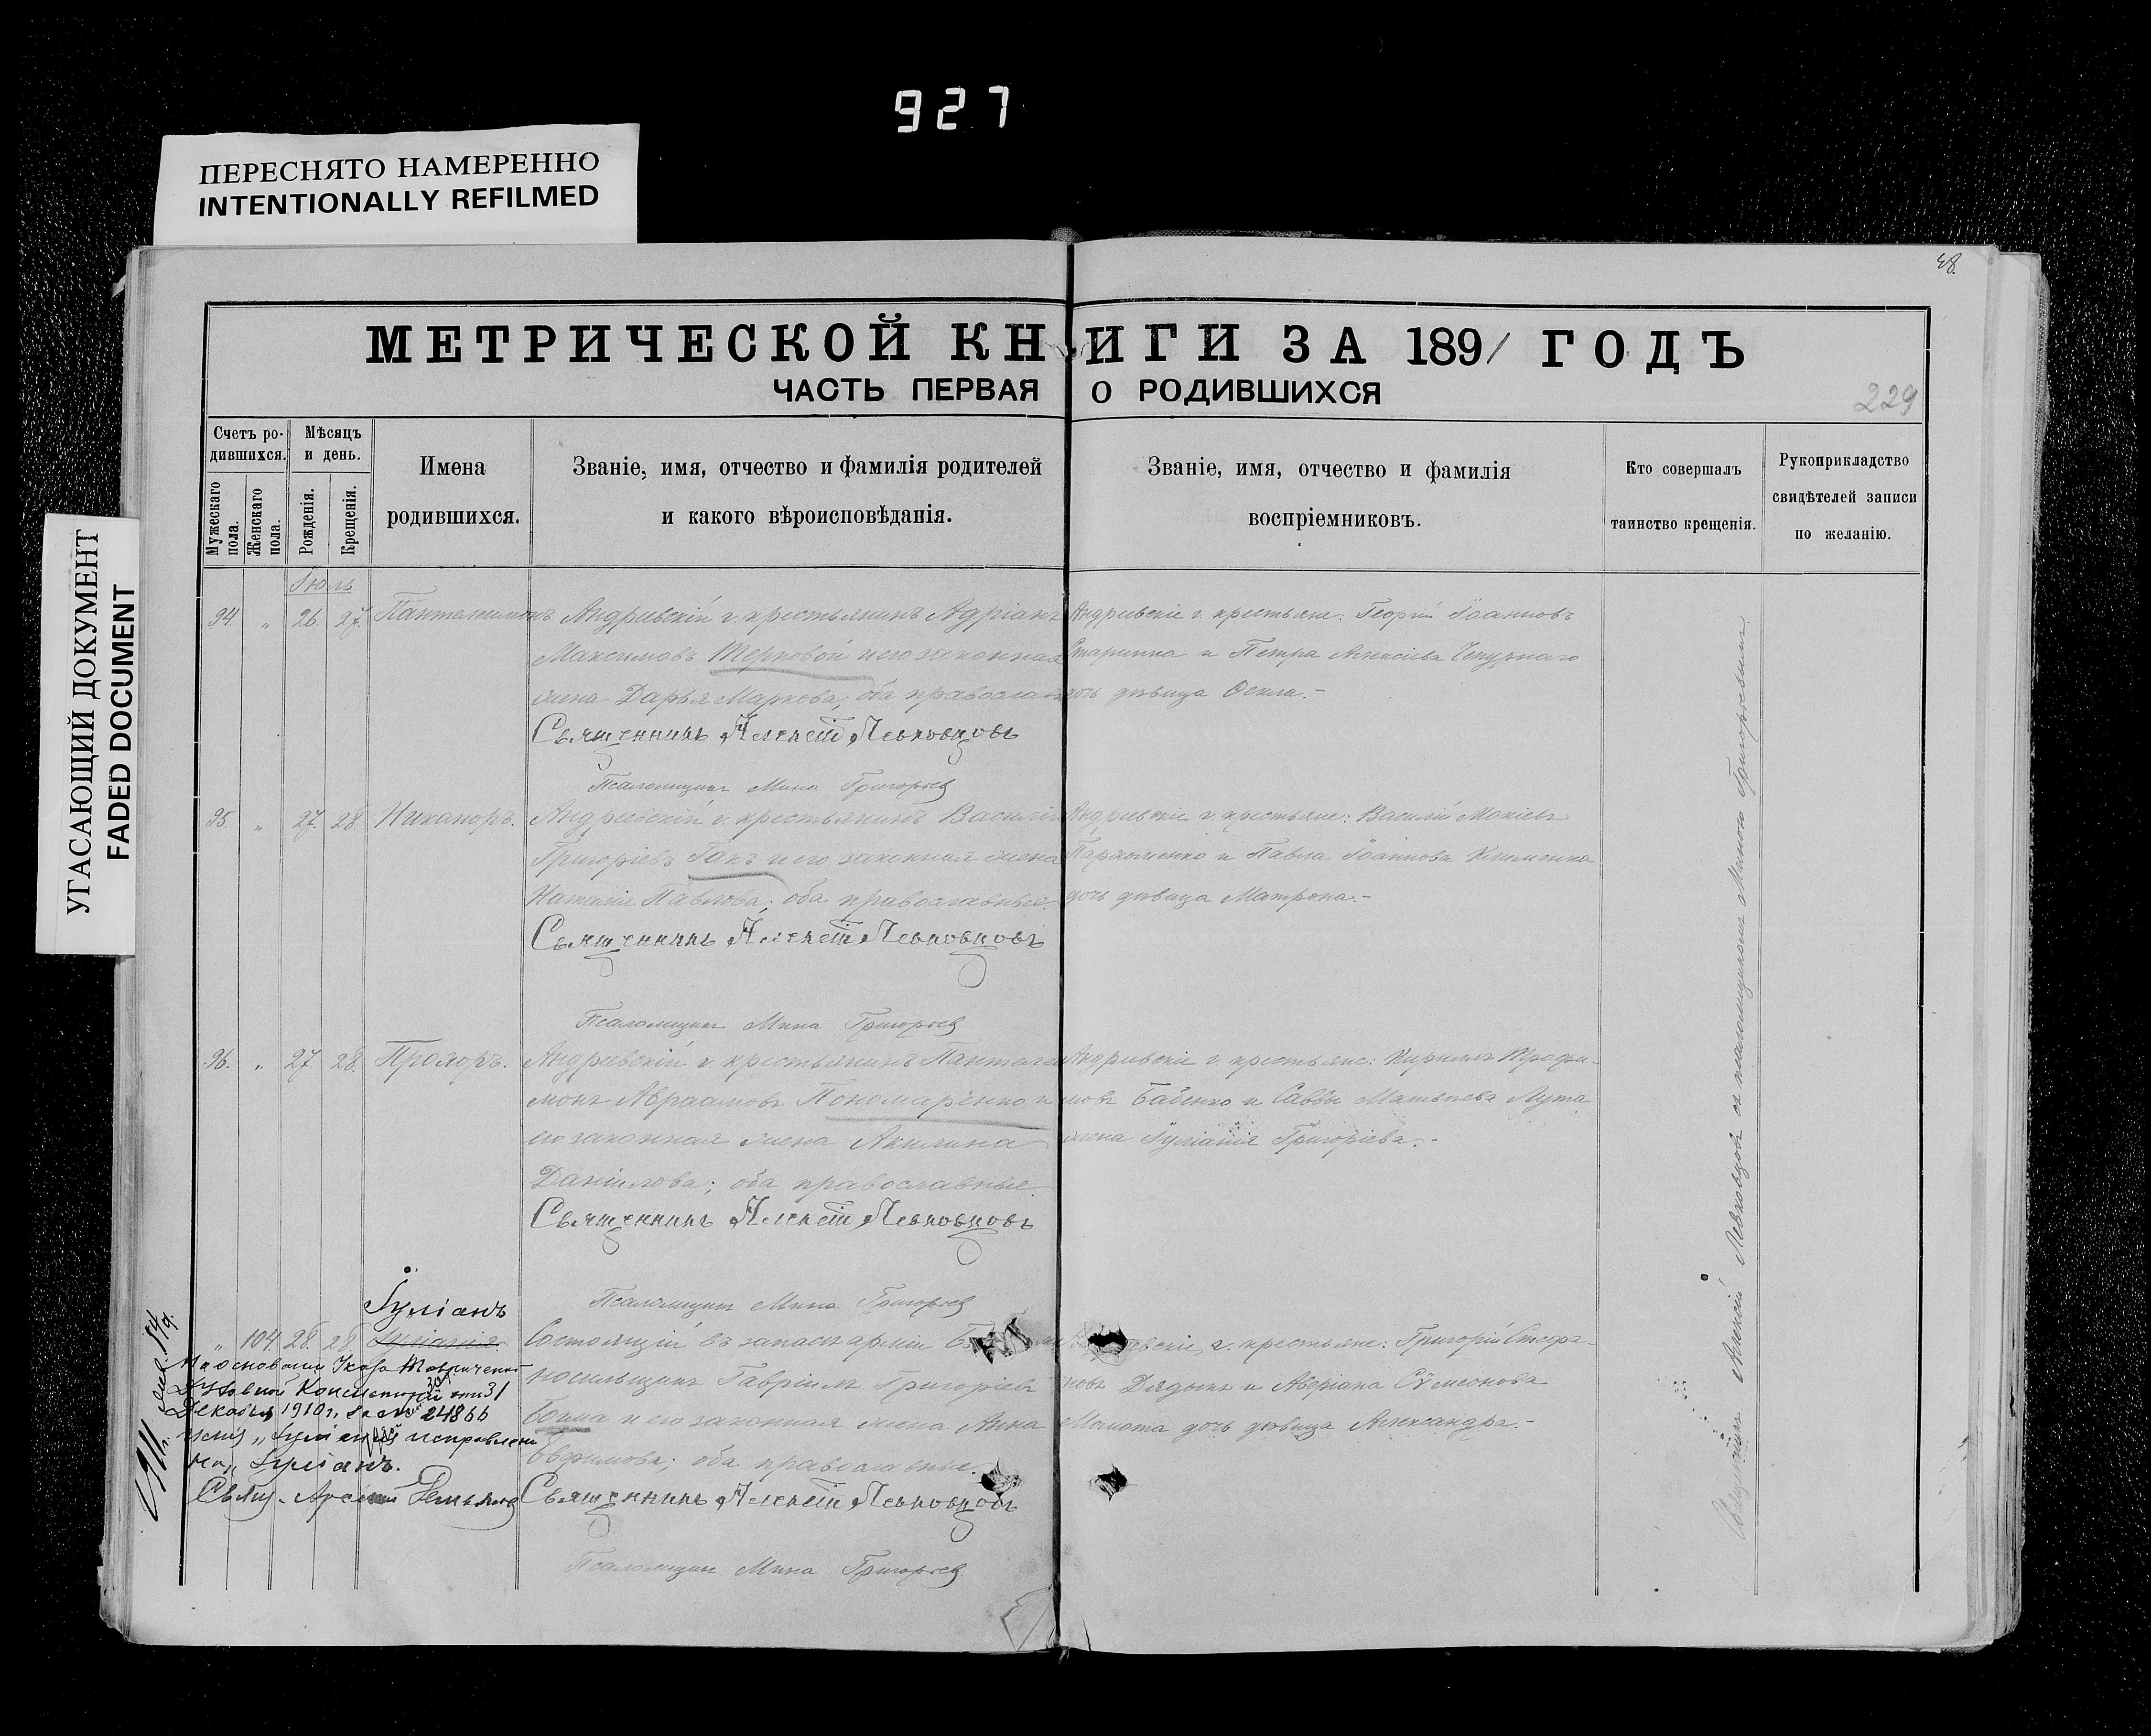 927
ПЕРЕСНЯТО НАМЕРЕННО
INTENTIONALLY REFILMED
УГАСАЮЩИЙ ДОКУМЕНТ
FADED DOCUMENT
48.
МЕТРИЧЕСКОЙ КНИГИ ЗА 1891 ГОДЪ
ЧАСТЬ ПЕРВАЯ О РОДИВШИХСЯ
229
Счетъ ро-
дившихся.
Мужескаго пола.
Женскаго пола.
Мѣсяцъ
и день.
Рожденія.
Крещенія.
Имена
родившихся.
Званіе, имя, отчество и фамилія родителей
и какого вѣроисповѣданія.
Званіе, имя, отчество и фамилія
воспріемниковъ.
Кто совершалъ
таинство крещенія.
Рукоприкладство
свидѣтелей записи
по желанію.
Іюль
94. „ 26. 27. Пантелеимонъ Андреевскій г. крестьянинъ Адріанъ
Максимовъ Терновой и его законная
жена Дарья Маркова; оба православн
Священникъ Алексій Левковцовъ
Псаломщикъ Мина Григорьев
Андреевскіе г. крестьяне: Георгій Іоанновъ
и Петра Алексіева
дочь дѣвица Оекла.-
95. „ 27. 28. Никаноръ. Андреевскій г. крестьянинъ Василій
Григоріевъ Гакъ и его законная жена
Наталія Павлова; оба православные.
Священникъ Алексій Левковцовъ
Псаломщикъ Мина Григорьев
Андреевскіе г. крестьяне: Василій Мокіевъ
Пархоменко и Павла Іоаннова Клименка
дочь дѣвица Матрона.-
96. „ 27 28. Прохоръ. Андреевскій г. крестьянинъ Пантелеи
монъ Авраамовъ Пономаренко и
его законная жена Акилина
Даніилова; оба православные.
Священникъ Алексій Левковцовъ
Псаломщикъ Мина Григорьев
Андреевскіе г. крестьяне: Кириллъ Трофи-
мовъ Бабенко и Саввы Матвѣева Лута
жена Іуліанія Григоріева.-
Іуліанъ
„ 104. 28. 28. Іуліанія. Состоящій въ запасѣ арміи
носильщикъ Гавріилъ Григоріевъ
и его законная жена Анна
Евфимова; оба православные.
Священникъ Алексій Левковцовъ
Псаломщикъ Мина Григорьев
г. крестьяне: Григорій Стефа-
новъ и Аверіана Сѵмеонова
Мамота дочь дѣвица Александра.-
На основаніи Указа Таврической
Духовной Консисторіи отъ 31
Декабря 1910 г. за № 24866
исправлено
на „Іуліанъ.
Свящ.
Священникъ Алексій Левковцовъ съ псаломщикомъ Миною Григорьевымъ.